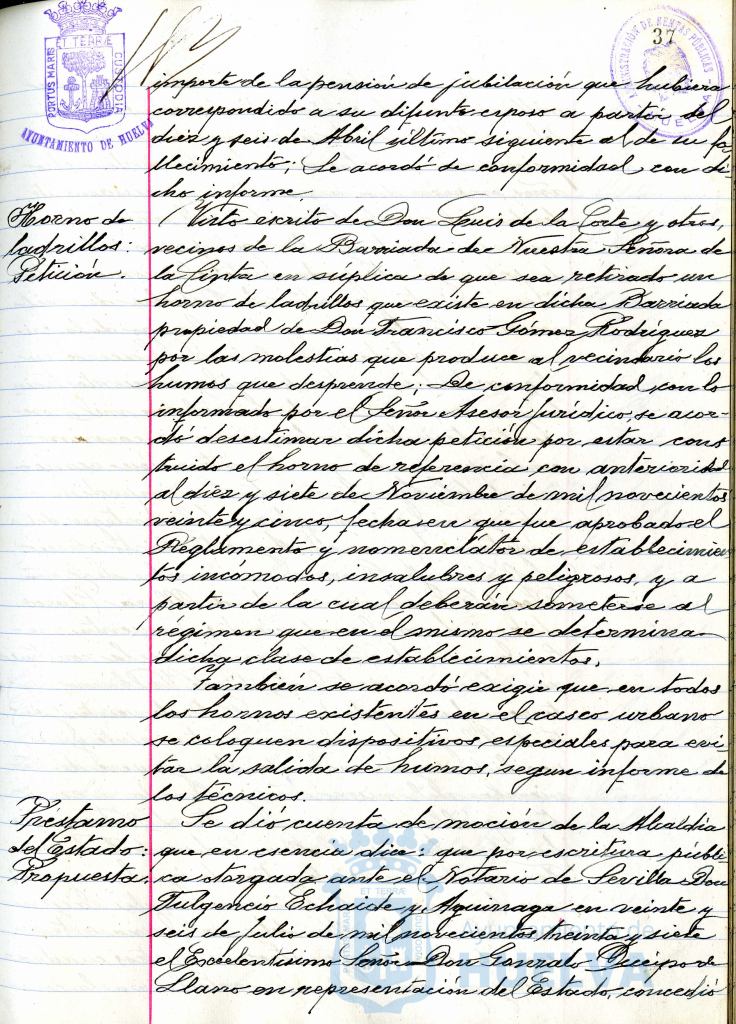 37
PORTUS MARIS ET TERRÆ CUSTODIA
AYUNTAMIENTO DE HUELVA
ADMINISTRACIÓN DE RENTAS PÚBLICAS
HUELVA
importe de la pensión de jubilación que hubiera
correspondido a su difunto esposo a partir del
diez y seis de Abril último siguiente al de su fa
llecimiento; Se acordó de conformidad con di
cho informe.
Horno de
ladrillos:
Petición.
Visto escrito de Don Luis de la Corte y otros,
vecinos de la Barriada de Nuestra Señora de
la Cinta en súplica de que sea retirado un
horno de ladrillos que existe en dicha Barriada
propiedad de Don Francisco Gómez Rodriguez
por las molestias que produce al vecindario los
humos que desprende; De conformidad con lo
informado por el Señor Asesor Jurídico, se acor-
dó desestimar dicha petición por estar cons
truido el horno de referencia con anterioridad
al diez y siete de Noviembre de mil novecientos
veinte y cinco, fecha en que fue aprobado el
Reglamento y nomenclátor de establecimien
tos incómodos, insalubres y peligrosos, y a
partir de la cual deberán someterse al
régimen que en el mismo se determina
dicha clase de establecimientos.
También se acordó exigir que en todos
los hornos existentes en el casco urbano
se coloquen dispositivos especiales para evi-
tar la salida de humos, segun informe de
los técnicos.
Préstamo
del Estado:
Propuesta.
Se dió cuenta de moción de la Alcaldía
que en esencia dice: que por escritura públi
ca otorgada ante el Notario de Sevilla Don
Fulgencio Echaide y Aguinaga en veinte y
seis de Julio de mil novecientos treinta y siete
el Excelentísimo Señor Don Gonzalo Queipo de
Llano en representación del Estado, concedió
ET TERRÆ
PORTUS MARIS
Ayuntamiento de
HUELVA